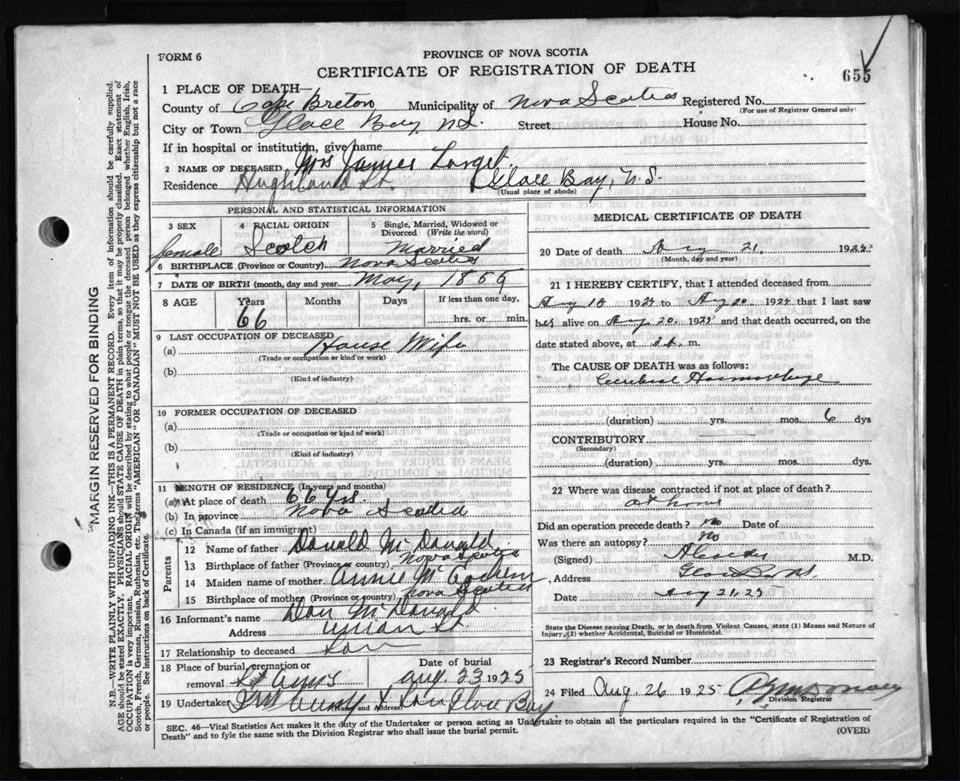 FORM 6
PROVINCE OF NOVA SCOTIA
CERTIFICATE OF REGISTRATION OF DEATH
655
1 PLACE OF DEATH—
County of Cape Breton Municipality of Nova Scotia Registered No.
(For use of Registrar General only)
City or Town Glace Bay, N.S. Street House No.
If in hospital or institution, give name
2 NAME OF DECEASED Mrs James
Residence Highland St. Glace Bay, N.S.
(Usual place of abode)
PERSONAL AND STATISTICAL INFORMATION
3 SEX 4 RACIAL ORIGIN 5 Single, Married, Widowed or Divorced (Write the word)
female Scotch Married
6 BIRTHPLACE (Province or Country) Nova Scotia
7 DATE OF BIRTH (month, day and year) May,
8 AGE Years Months Days If less than one day,
66 hrs. or min.
9 LAST OCCUPATION OF DECEASED
(a) House Wife
(Trade or occupation or kind of work)
(b)
(Kind of industry)
10 FORMER OCCUPATION OF DECEASED
(a)
(Trade or occupation or kind of work)
(b)
(Kind of industry)
11 LENGTH OF RESIDENCE (In years and months)
(a) At place of death 66 yrs.
(b) In province Nova Scotia
(c) In Canada (if an immigrant)
Parents
12 Name of father Donald McDonald
13 Birthplace of father (Province or country) Nova Scotia
14 Maiden name of mother Annie
15 Birthplace of mother (Province or country) Nova Scotia
16 Informant's name Dan McDonald
Address Union St
17 Relationship to deceased
18 Place of burial, cremation or removal Date of burial
St Anns Aug 23 1925
19 Undertaker & Son Glace Bay
(Name and Address)
MEDICAL CERTIFICATE OF DEATH
20 Date of death Aug 21, 1925
(Month, day and year)
21 I HEREBY CERTIFY, that I attended deceased from
Aug 192 to Aug 20 192 that I last saw
alive on Aug 20. 192 and that death occurred, on the
date stated above, at m.
The CAUSE OF DEATH was as follows:
Cerebral Haemorrhage
(duration) yrs. mos. 6 dys
CONTRIBUTORY
(Secondary)
(duration) yrs. mos. dys.
22 Where was disease contracted if not at place of death?
at home
Did an operation precede death? no Date of
Was there an autopsy? no
(Signed) M.D.
Address Glace Bay NS
Date Aug 21, 25
State the Disease causing Death, or in death from Violent Causes, state (1) Means and Nature of Injury, (2) whether Accidental, Suicidal or Homicidal.
23 Registrar's Record Number
24 Filed Aug. 26 1925
Division Registrar
SEC. 46—Vital Statistics Act makes it the duty of the Undertaker or person acting as Undertaker to obtain all the particulars required in the "Certificate of Registration of
Death" and to fyle the same with the Division Registrar who shall issue the burial permit. (OVER)
MARGIN RESERVED FOR BINDING
N.B.—WRITE PLAINLY WITH UNFADING INK—THIS IS A PERMANENT RECORD. Every item of information should be carefully supplied.
AGE should be stated EXACTLY. PHYSICIANS should STATE CAUSE OF DEATH in plain terms, so that it may be properly classified. Exact statement of
OCCUPATION is very important. RACIAL ORIGIN will be described by stating to what people or tongue the deceased person belonged whether English, Irish,
Scotch, French, German, Russian, Ruthenian, etc. The terms "AMERICAN" OR "CANADIAN" MUST NOT BE USED as they express citizenship but not a race
or people. See instructions on back of Certificate.